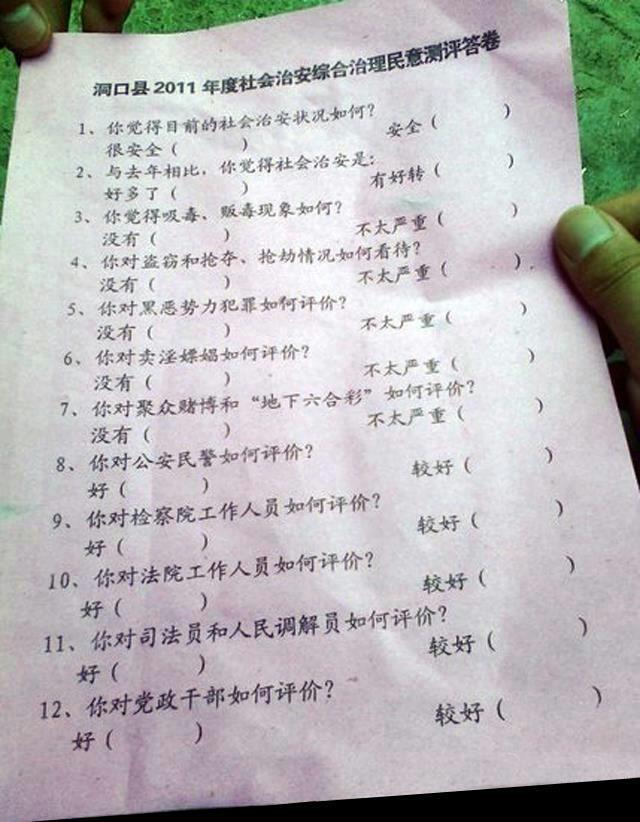 洞口县2011年度社会治安综合治理民意测评答卷
1、你觉得目前的社会治安状况如何？
很安全（ ） 安全（ ）
2、与去年相比，你觉得社会治安是：
好多了（ ） 有好转（ ）
3、你觉得吸毒、贩毒现象如何？
没有（ ） 不太严重（ ）
4、你对盗窃和抢夺、抢劫情况如何看待？
没有（ ） 不太严重（ ）
5、你对黑恶势力犯罪如何评价？
没有（ ） 不太严重（ ）
6、你对卖淫嫖娼如何评价？
没有（ ） 不太严重（ ）
7、你对聚众赌博和“地下六合彩”如何评价？
没有（ ） 不太严重（ ）
8、你对公安民警如何评价？
好（ ） 较好（ ）
9、你对检察院工作人员如何评价？
好（ ） 较好（ ）
10、你对法院工作人员如何评价？
好（ ） 较好（ ）
11、你对司法员和人民调解员如何评价？
好（ ） 较好（ ）
12、你对党政干部如何评价？
好（ ） 较好（ ）